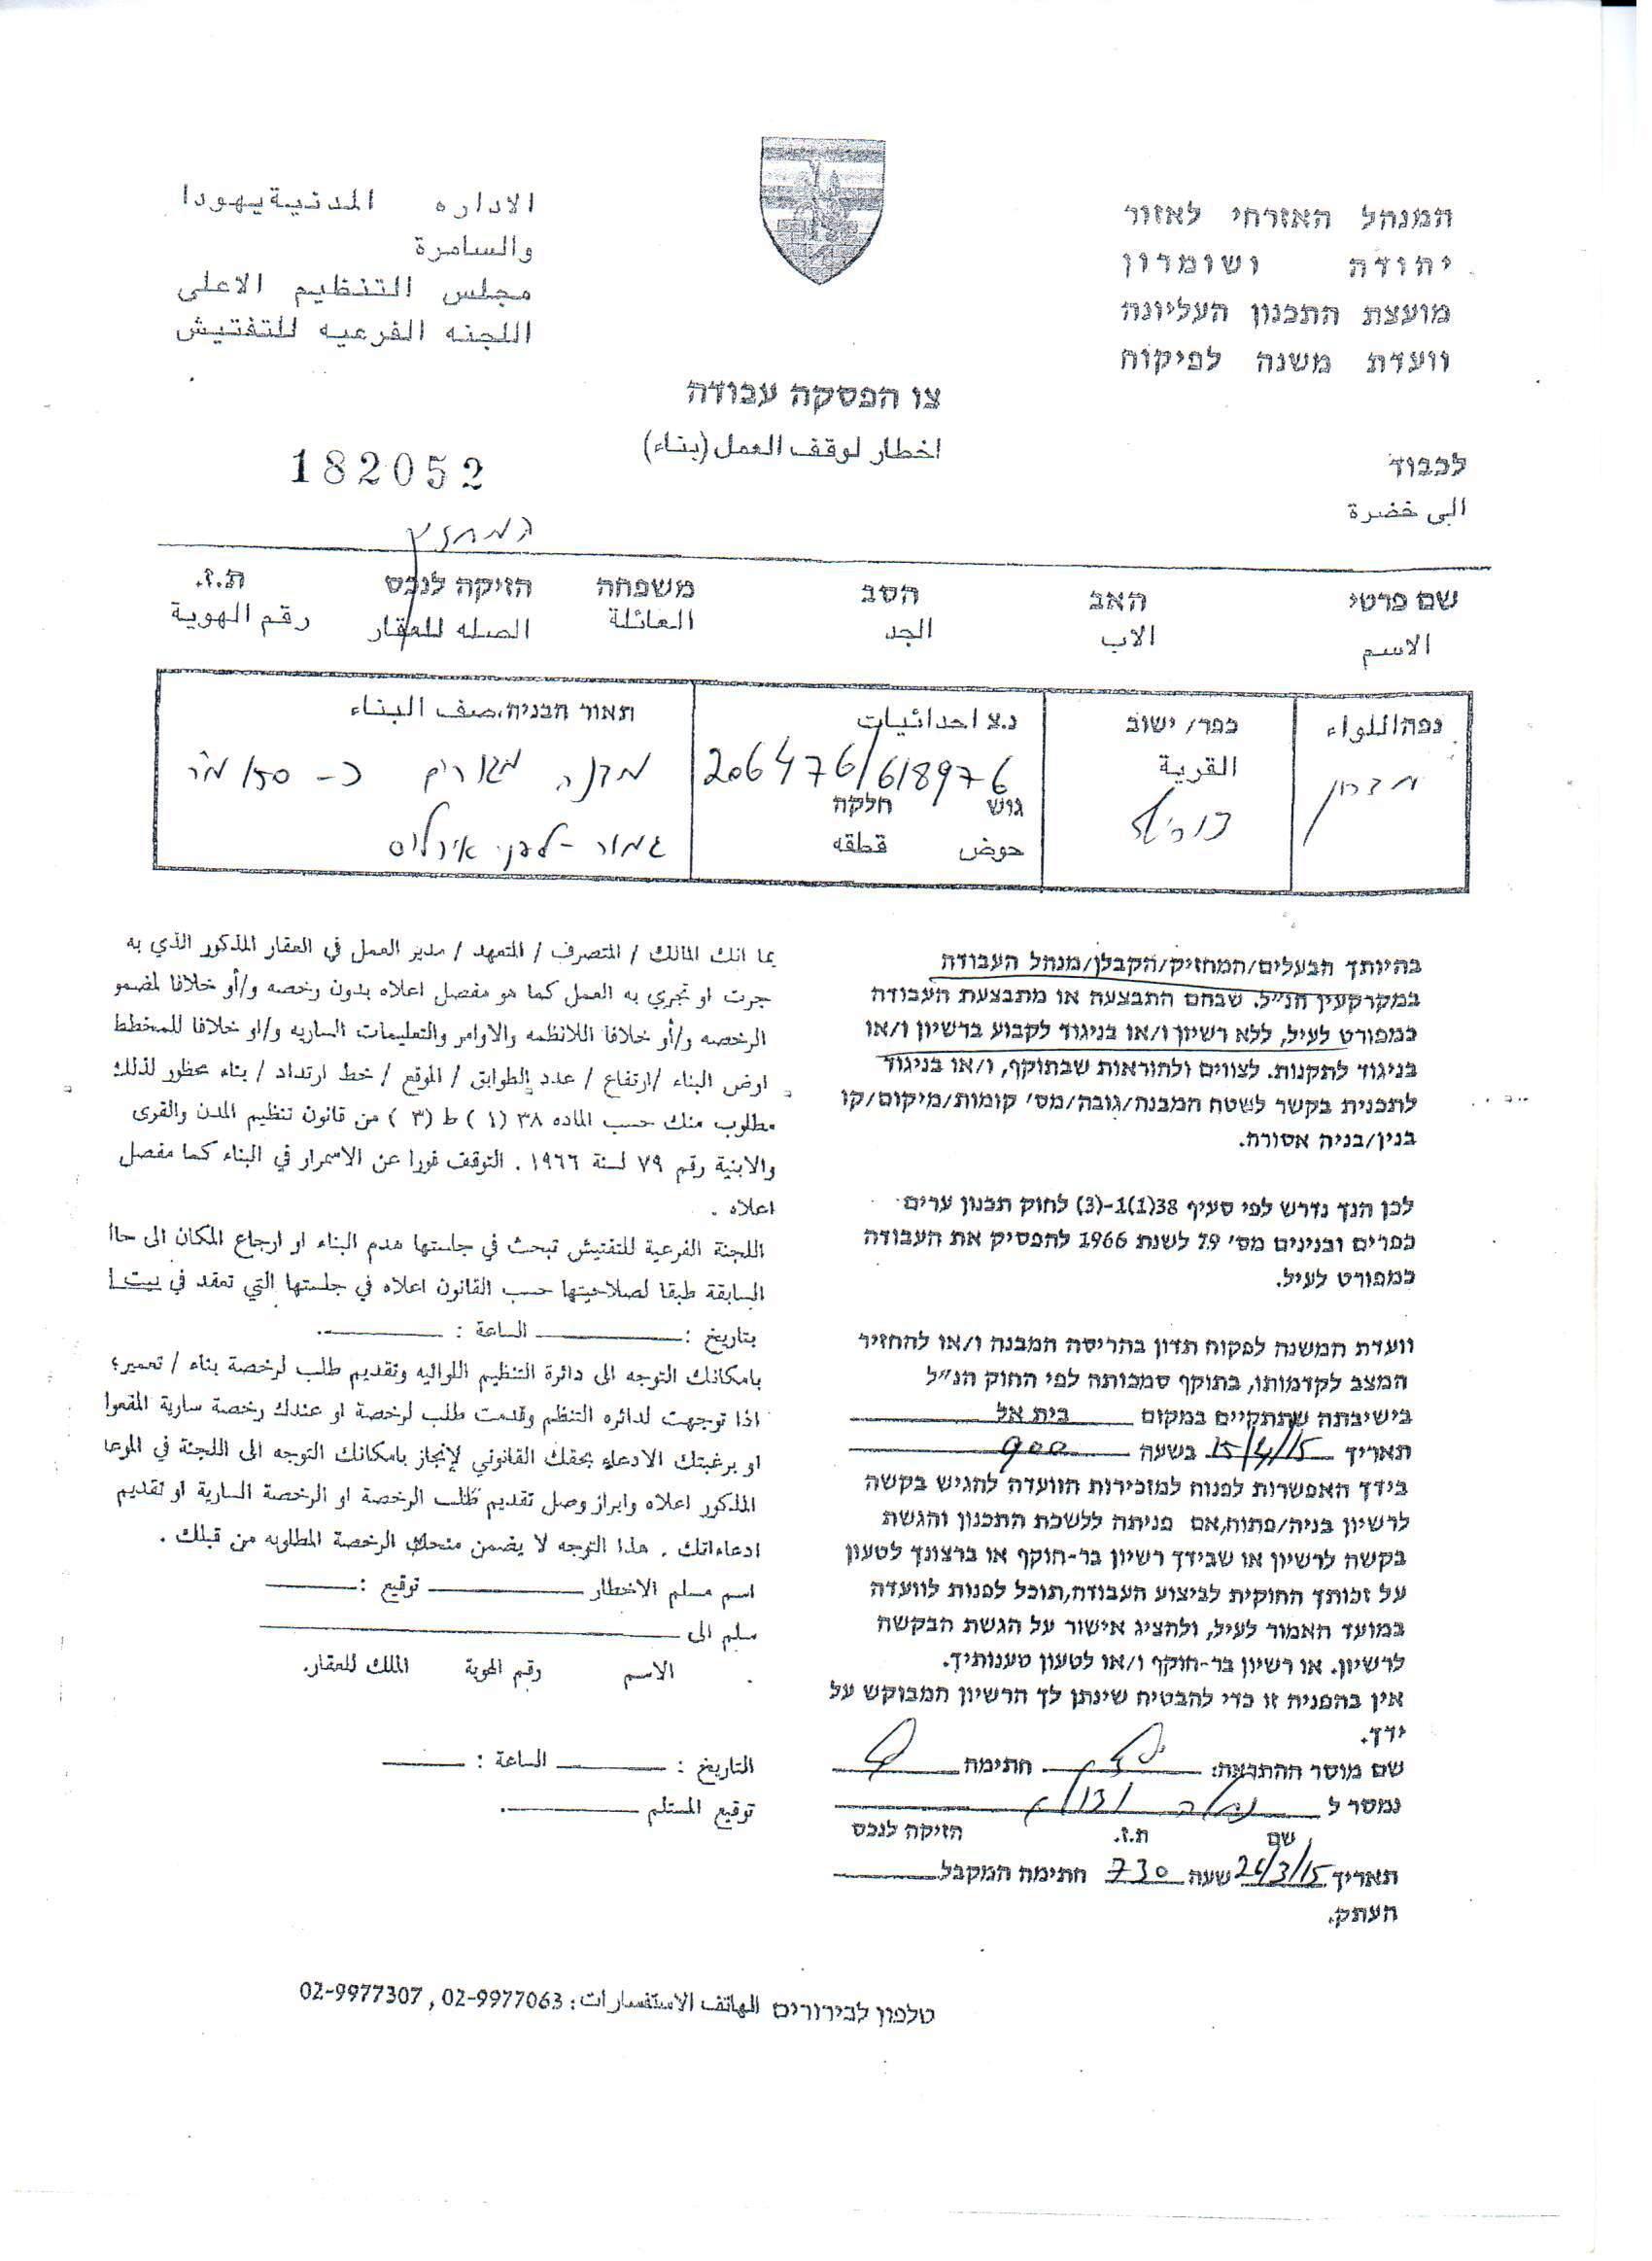 המנהל האזרחי לאזור
יהודה ושומרון
מועצת התכנון העליונה
וועדת משנה לפיקוח
الاداره المدنية يهودا
والسامرة
مجلس التنظيم الاعلى
اللجنه الفرعيه للتفتيش
צו הפסקה עבודה
اخطار لوقف العمل (بناء)
182052
לכבוד
الى خضرة
המחזיק
שם פרטי האב הסב משפחה הזיקה לנכס ת.ז.
الاسم الاب الجد العائلة الصله للعقار رقم الهوية
נפה اللواء
כפר/ ישוב
القرية
נ.צ احداثيات
206476/618976
גוש חלקה
حوض قطقه
תאור הבניה، صف البناء
מבנה מגורים כ- 150 מ"ר
גמור - לפני
בהיותך הבעלים/המחזיק/הקבלן/מנהל העבודה
במקרקעין הנ״ל. שבהם התבצעה או מתבצעת העבודה
כמפורט לעיל, ללא רשיון ו/או בניגוד לקבוע ברשיון ו/או
בניגוד לתקנות. לצווים ולהוראות שבתוקף, ו/או בניגוד
לתכנית בקשר לשטח המבנה/גובה/מס׳ קומות/מיקום/קו
בנין/בניה אסורה.
לכן הנך נדרש לפי סעיף 38(1)1-(3) לחוק תכנון ערים
כפרים ובנינים מס׳ 79 לשנת 1966 להפסיק את העבודה
כמפורט לעיל.
וועדת המשנה לפקוח תדון בהריסה המבנה ו/או להחזיר
המצב לקדמותו, בתוקף סמכותה לפי החוק הנ״ל
בישיבתה שתתקיים במקום בית אל
תאריך 15/4/15 בשעה 900
בידך האפשרות לפנות למזכירות הוועדה להגיש בקשה
לרשיון בניה/פתוח,אם פניתה ללשכת התכנון והגשת
בקשה לרשיון או שבידך רשיון בר-חוקף או ברצונך לטעון
על זכותך החוקית לביצוע העבודה,תוכל לפנות לוועדה
במועד האמור לעיל, ולהציג אישור על הגשת הבקשה
לרשיון. או רשיון בר-חוקף ו/או לטעון טענותיך.
אין בהפניה זו כדי להבטיח שינתן לך הרשיון המבוקש על
ידך.
שם מוסר ההתראה: חתימה
נמסר ל
שם ת.ז. הזיקה לנכס
תאריך 26/3/15 שעה 730 חתימה המקבל
העתק.
بما انك المالك / المتصرف / المتعهد / مدير العمل في العقار المذكور الذي به
جرت او تجري به العمل كما هو مفصل اعلاه بدون رخصه و/أو خلافا لمضمو
الرخصه و/أو خلافا اللانظمه والاوامر والتعليمات الساريه و/او خلافا للمخطط
ارض البناء /ارتفاع / عدد الطوابق / الموقع / خط ارتداد / بناء محظور لذلك
مطلوب منك حسب الماده ٣٨ (١) ط (٣) من قانون تنظيم المدن والقرى
والابنية رقم ٧٩ لسنة ١٩٦٦ . التوقف فورا عن الاسمرار في البناء كما مفصل
اعلاه .
اللجنة الفرعية للتفتيش تبحث في جلستها هدم البناء او ارجاع المكان الى حاا
السابقة طبقا لصلاحيتها حسب القانون اعلاه في جلستها التي تعقد في بيت ا
بتاريخ : الساعة : .
بامكانك التوجه الى دائرة التنظيم اللوائيه وتقديم طلب لرخصة بناء / تعمير؛
اذا توجهت لدائره التنظم وقدمت طلب لرخصة او عندك رخصة سارية المفعوا
او برغبتك الادعاء بحقك القانوني لإنجاز بامكانك التوجه الى اللجنة في الموعا
المذكور اعلاه وابراز وصل تقديم طلب الرخصة او الرخصة السارية او تقديم
ادعاءاتك . هذا التوجه لا يضمن منحك الرخصة المطلوبه من قبلك .
اسم مسلم الاخطار توقيع :
سلم الى
الاسم رقم الهوية الملك للعقار.
التاريخ : الساعة :
توقيع المستلم .
טלפון לבירורים الهاتف الاستفسارات: 02-9977063 , 02-9977307